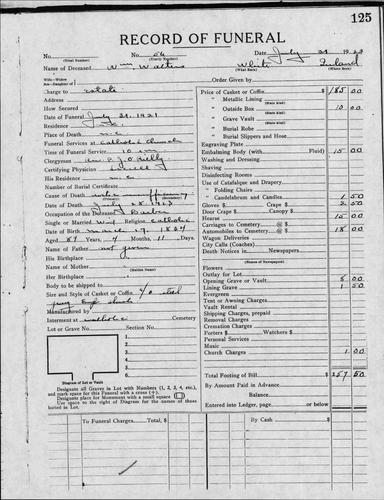 125
RECORD OF FUNERAL
No. No. 54 Date July 31 1923
(Total Number) (Yearly Number)
Name of Deceased Wm. Walters White Ireland
(What Race) (Where Born)
Order Given by
Charge to estate
Address
How Secured
Date of Funeral July 31, 1921
Residence
Place of Death
Funeral Services at Catholic Church
Time of Funeral Service 10 am
Clergyman Rev. P. J. O'Reilly
Certifying Physician
His Residence
Number of Burial Certificate
Cause of Death
Date of Death July 28
Occupation of the Deceased
Single or Married Wid Religion Catholic
Date of Birth March 17,
Aged Years, 4 Months, 11 Days.
Name of Father not given
His Birthplace
Name of Mother
(Maiden Name)
Her Birthplace
Body to be shipped
Size and Style of Casket or Coffin
Manufactured by
Interment at Catholic Cemetery
Lot or Grave No. Section No.
Diagram of Lot or Vault
Designate all Graves in Lot with Numbers (1, 2, 3, 4, etc.), and mark space for this Funeral with a cross (+).
Designate place for Monument with a small square
Use space to right of Diagram for the names of those buried in Lot.
Price of Casket or Coffin $185 00
" Metallic Lining
(State Kind)
" Outside Box 10 00
(State Kind)
" Grave Vault
(State Kind)
" Burial Robe
(State Kind)
" Burial Slippers and Hose
Engraving Plate
Embalming Body (with Fluid) 15 00
Washing and Dressing
Shaving
Disinfecting Rooms
Use of Catafalque and Drapery
" Folding Chairs
" Candelabrum and Candles 1 50
Gloves $ Crape $ 2 50
Door Crape Canopy
Hearse 10 00
Carriages to Cemetery @ $
Automobiles to Cemetery @ $ 18 00
Wagon Deliveries
City Calls (Coaches)
Death Notices in Newspapers
(Names of Newspapers)
Flowers
Outlay for Lot
Opening Grave or Vault 8 00
Lining Grave 1 50
Evergreen
Tent or Awning Charges
Vault Rental
Shipping Charges, prepaid
Removal Charges
Cremation Charges
Porters $ Watchers $
Personal Services
Music
Church Charges 1 00
Total Footing of Bill $257 50
By Amount Paid in Advance
Balance
Entered into Ledger, page or below.
To Funeral Charges, Total, $ By Cash $